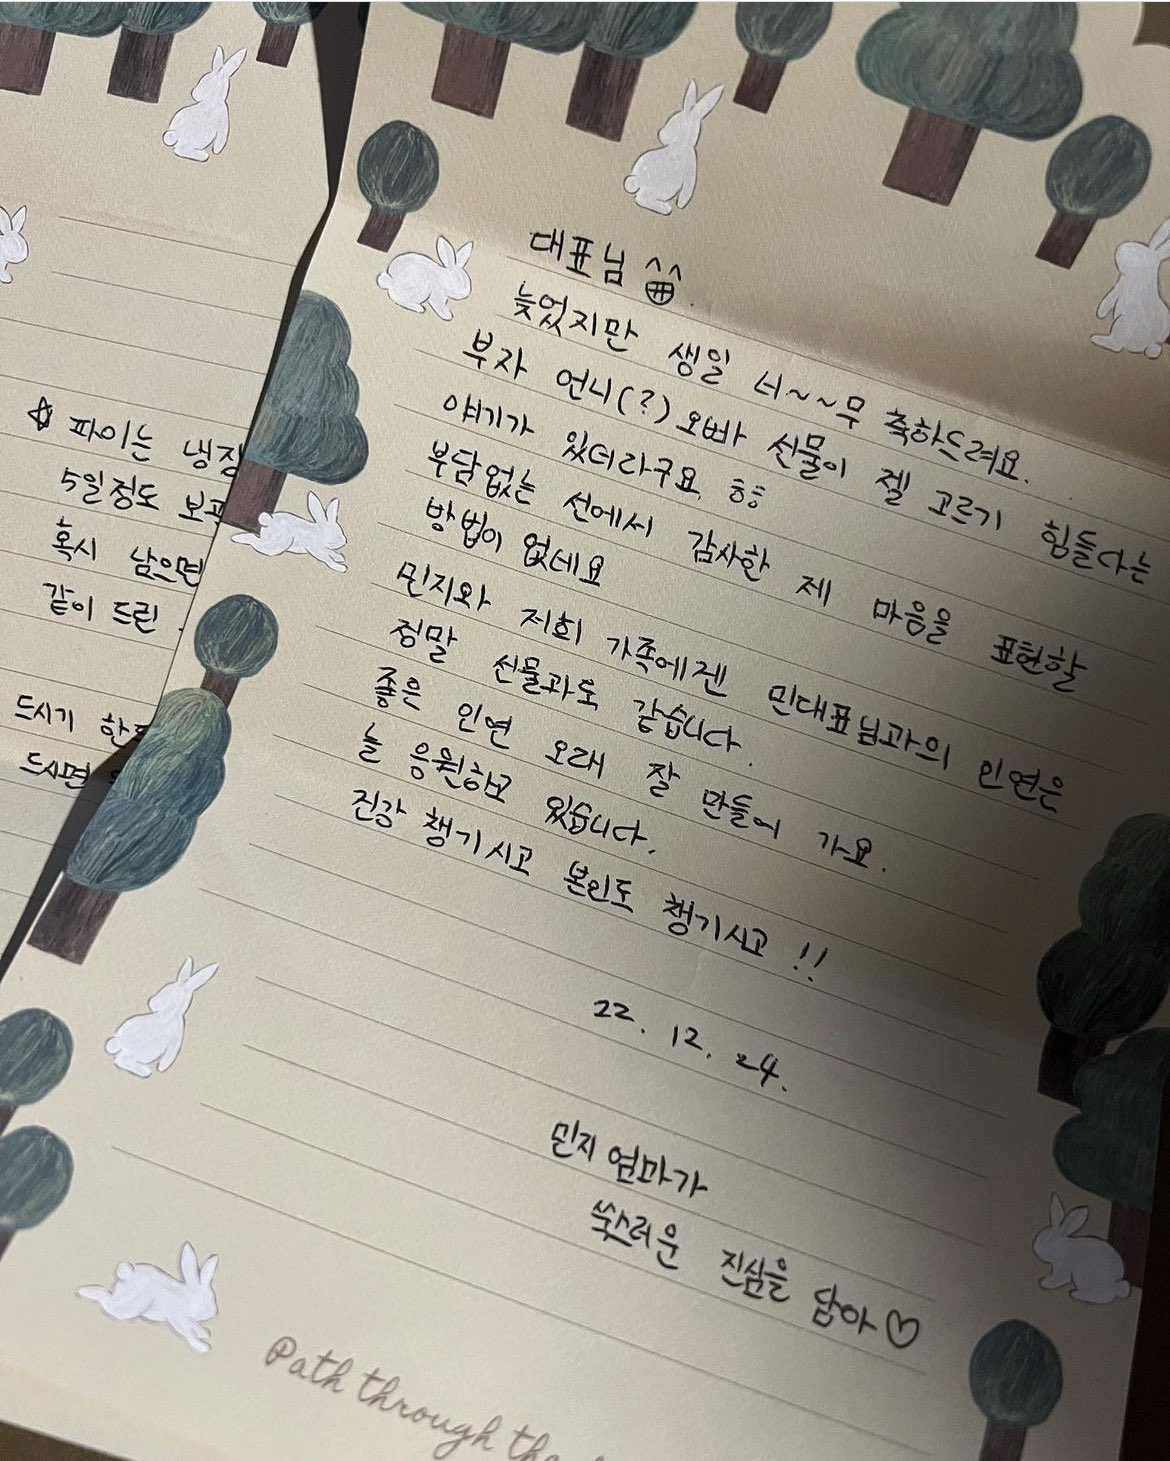 ☆ 파이는 냉장
5일정도 보관
혹시 남으면
같이 드린
드시기 한
드시면
대표님
늦었지만 생일 너~~무 축하드려요.
부자 언니(?)오빠 선물이 젤 고르기 힘들다는
얘기가 있더라구요. ㅎㅎ
부담없는 선에서 감사한 제 마음을 표현할
방법이 없네요
민지와 저희 가족에겐 민대표님과의 인연은
정말 선물과도 같습니다.
좋은 인연 오래 잘 만들어 가요.
늘 응원하고 있습니다.
진강 챙기시고 본인도 챙기시고 !!
22. 12. 24.
민지 엄마가
쑥스러운 진심을 담아♡
Path through the